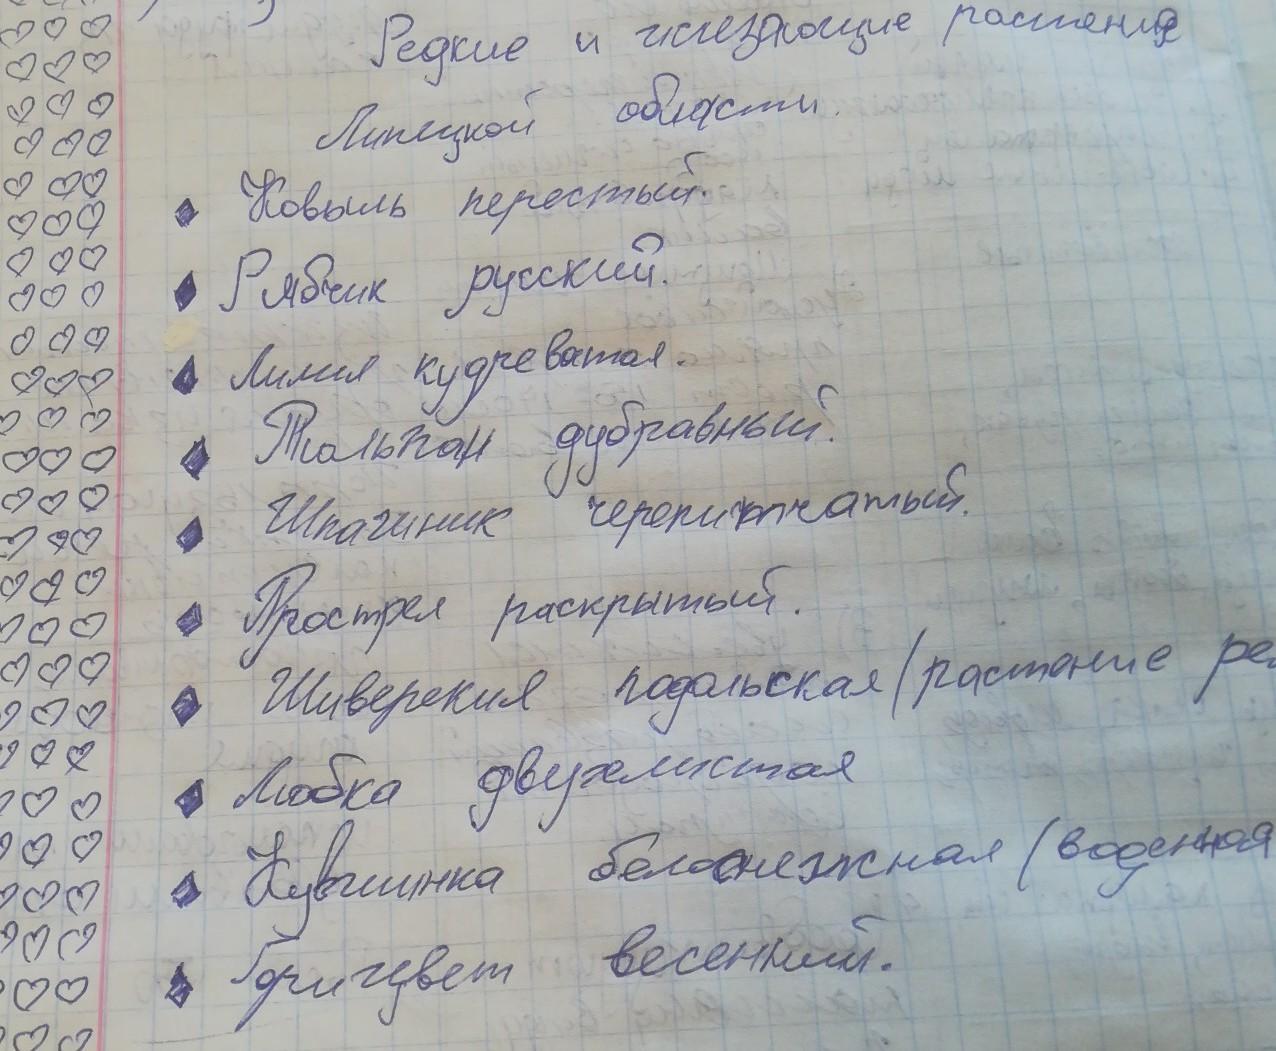 Редкие и исчезающие растения
Липецкой области.
Ковыль перестый.
Рябчик русский.
Лилия кудреватая.
Тюльпан дубравный.
Шпажник черепитчатый.
Прострел раскрытый.
Шиверекия подольская (растение ре
Любка двухлистая
Кувшинка белоснежная (воденная
Горицвет весенний.